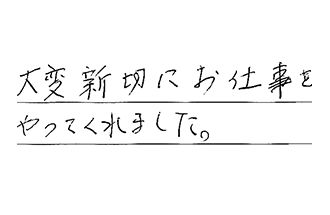 大変新切にお仕事を
やってくれました。